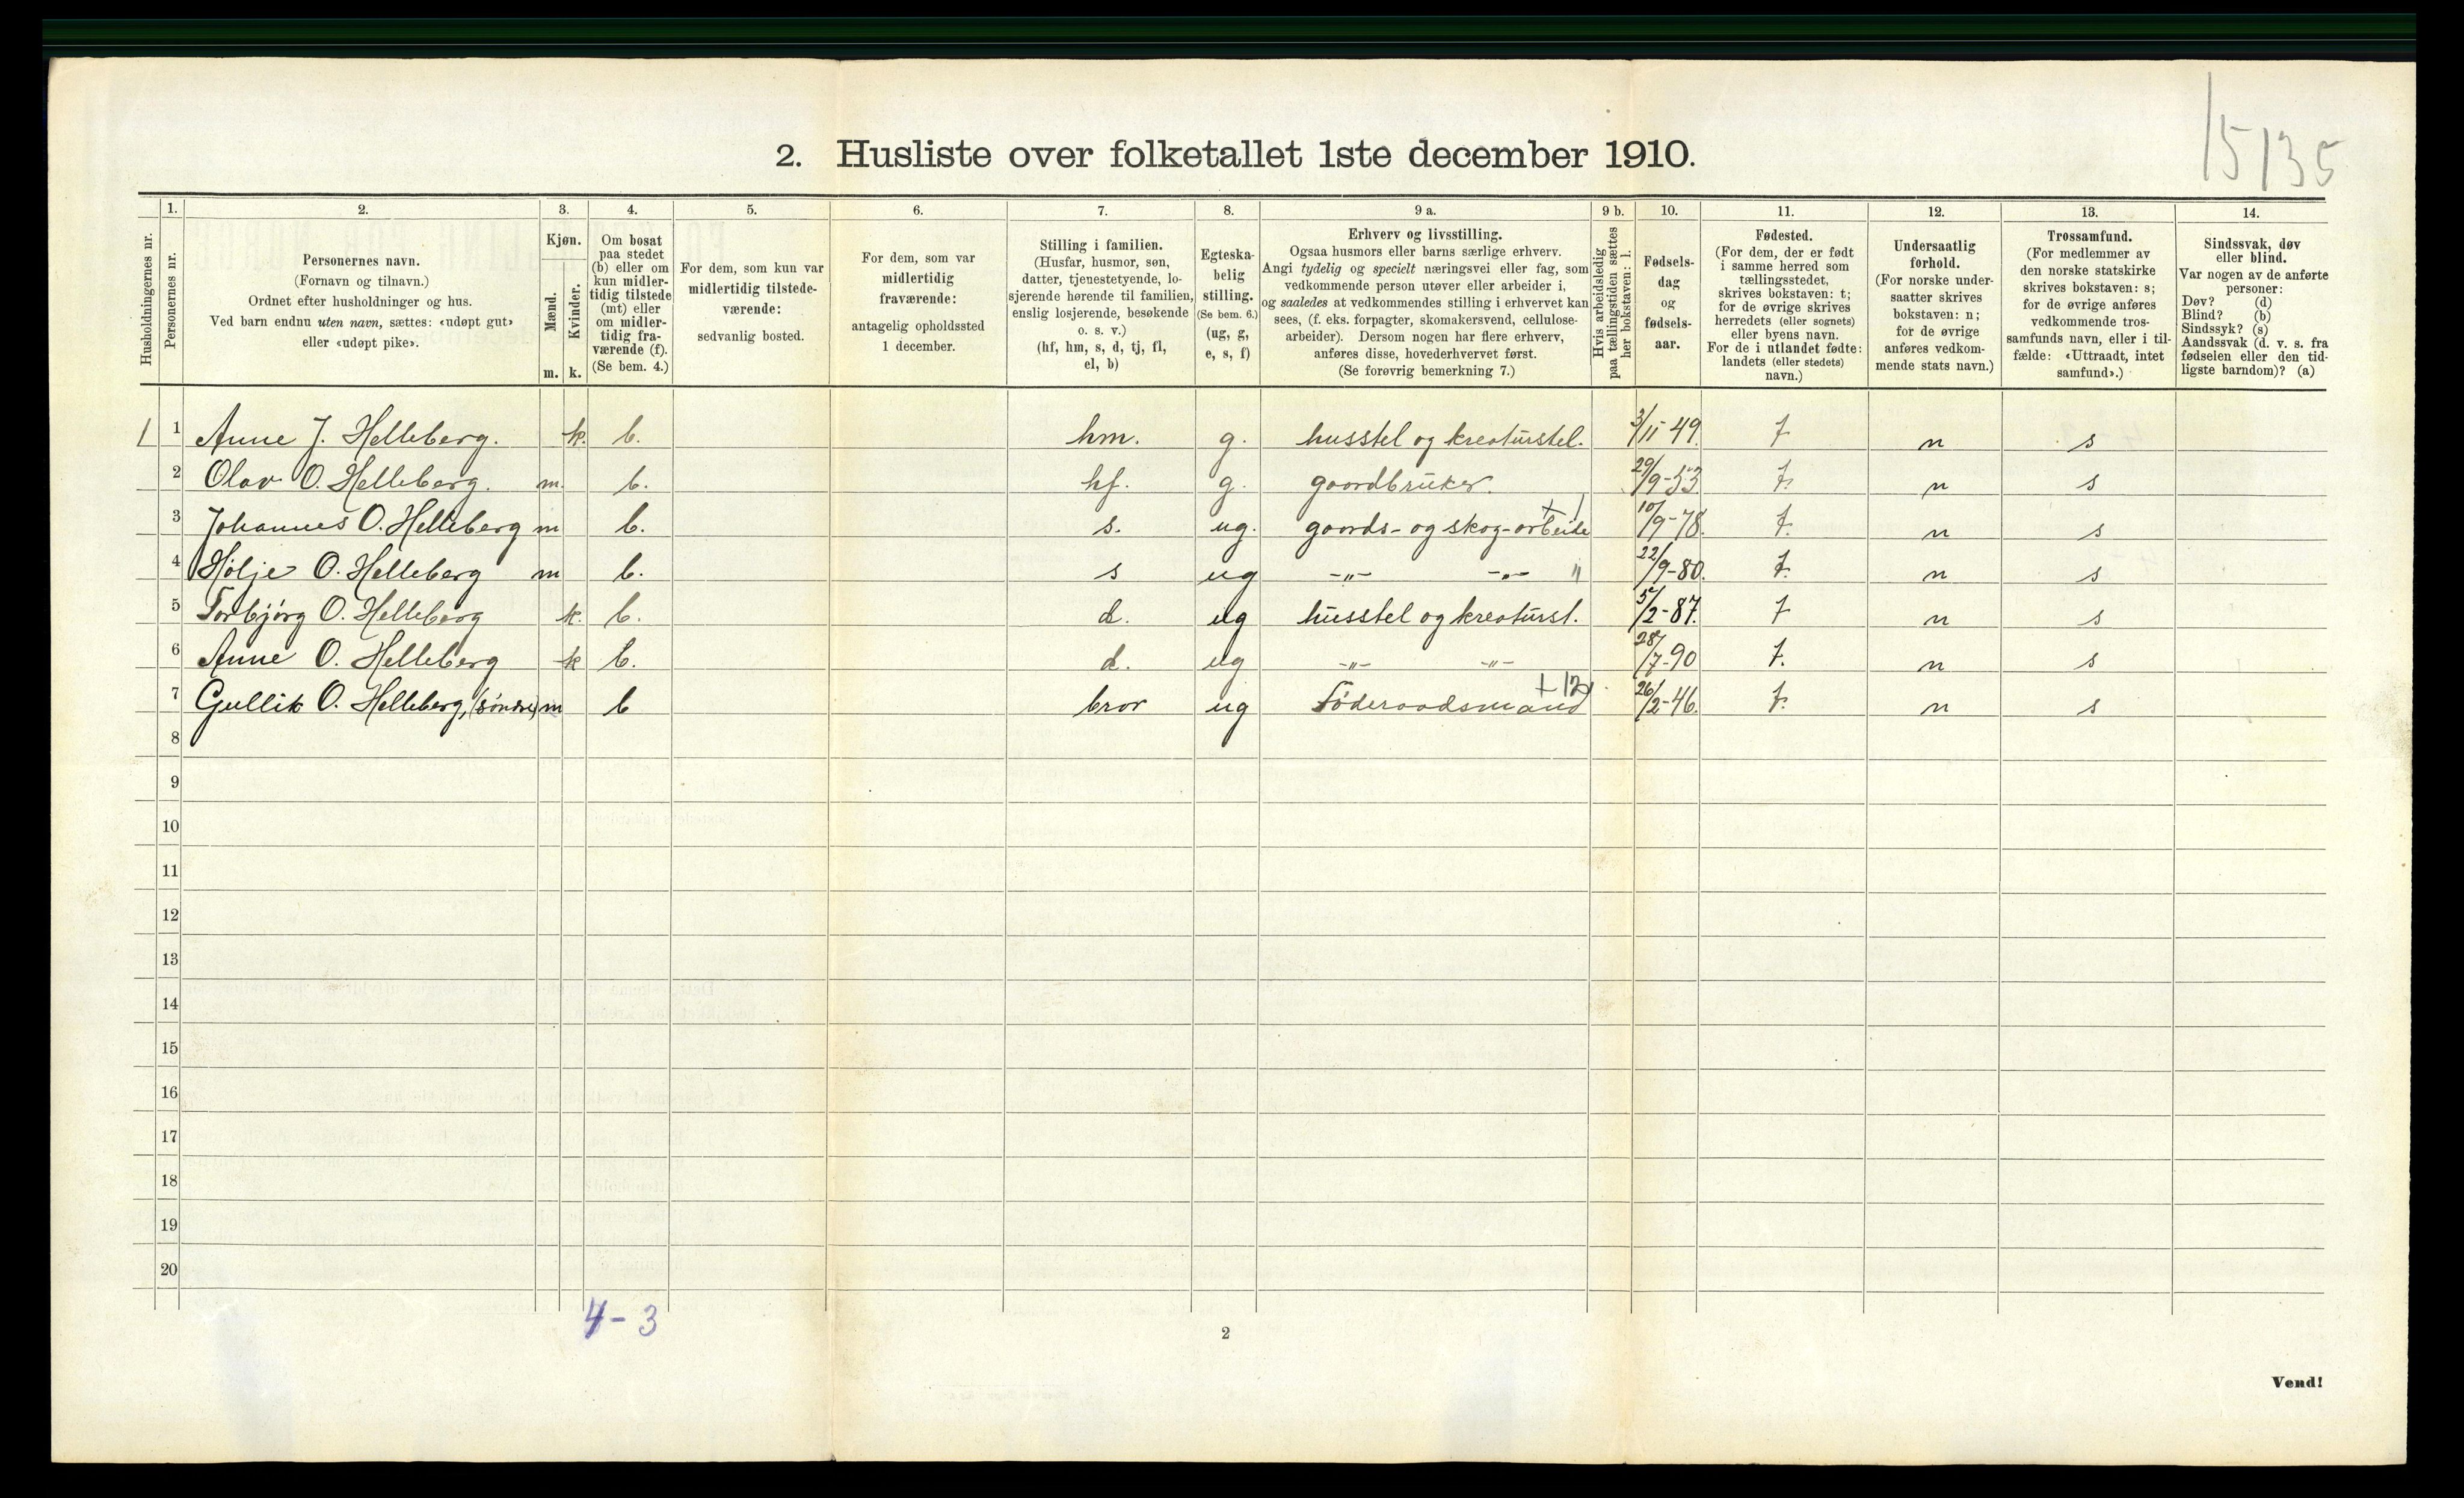 15/35
2. Husliste over folketallet 1ste december 1910.
Husholdningernes nr.
1. Personernes nr.
2. Personernes navn.
(Fornavn og tilnavn.)
Ordnet efter husholdninger og hus.
Ved barn endnu uten navn, sættes: «udøpt gut»
eller «udøpt pike».
3. Kjøn.
Mænd. m.
Kvinder. k.
4. Om bosat
paa stedet
(b) eller om
kun midler-
tidig tilstede
(mt) eller
om midler-
tidig fra-
værende (f).
(Se bem. 4.)
5. For dem, som kun var
midlertidig tilstede-
værende:
sedvanlig bosted.
6. For dem, som var
midlertidig
fraværende:
antagelig opholdssted
1 december.
7. Stilling i familien.
(Husfar, husmor, søn,
datter, tjenestetyende, lo-
sjerende hørende til familien,
enslig losjerende, besøkende
o. s. v.)
(hf, hm, s, d, tj, fl,
el, b)
8. Egteska-
belig
stilling.
(Se bem. 6.)
(ug, g,
e, s, f)
9 a. Erhverv og livsstilling.
Ogsaa husmors eller barns særlige erhverv.
Angi tydelig og specielt næringsvei eller fag, som
vedkommende person utøver eller arbeider i,
og saaledes at vedkommendes stilling i erhvervet kan
sees, (f. eks. forpagter, skomakersvend, cellulose-
arbeider). Dersom nogen har flere erhverv,
anføres disse, hovederhvervet først.
(Se forøvrig bemerkning 7.)
9 b. Hvis arbeidsledig
paa tællingstiden sættes
her bokstaven: l.
10. Fødsels-
dag
og
fødsels-
aar.
11. Fødested.
(For dem, der er født
i samme herred som
tællingsstedet,
skrives bokstaven: t;
for de øvrige skrives
herredets (eller sognets)
eller byens navn.
For de i utlandet fødte:
landets (eller stedets)
navn.)
12. Undersaatlig
forhold.
(For norske under-
saatter skrives
bokstaven: n;
for de øvrige
anføres vedkom-
mende stats navn.)
13. Trossamfund.
(For medlemmer av
den norske statskirke
skrives bokstaven: s;
for de øvrige anføres
vedkommende tros-
samfunds navn, eller i til-
fælde: «Uttraadt, intet
samfund».)
14. Sindssvak, døv
eller blind.
Var nogen av de anførte
personer:
Døv? (d)
Blind? (b)
Sindssyk? (s)
Aandssvak (d. v. s. fra
fødselen eller den tid-
ligste barndom)? (a)
1 1 Anne J. Helleberg. k. b. hm. g. husstel og kreaturstel. 3/11-49. t n s
2 Olav O. Helleberg. m. b. hf. g. gaardbruker. 29/9-53 t. n s
3 Johannes O. Helleberg m b. s. ug. gaards- og skog-arbeide 10/9-78. t. n s
4 Hølje O. Helleberg m b. s ug -„- -„- " 22/9-80. t. n s
5 Torbjørg O. Helleberg k. b. d. ug husstel og kreaturst. 5/2-87. t n s
6 Anne O. Helleberg k b. d. ug -„- -„- 28/7-90 t. n s
7 Gullik O. Helleberg, (søndre) m b bror ug Føderaadsmand 26/2-46. t. n s
8
9
10
11
12
13
14
15
16
17
18
19
20
4-3
2
Vend!